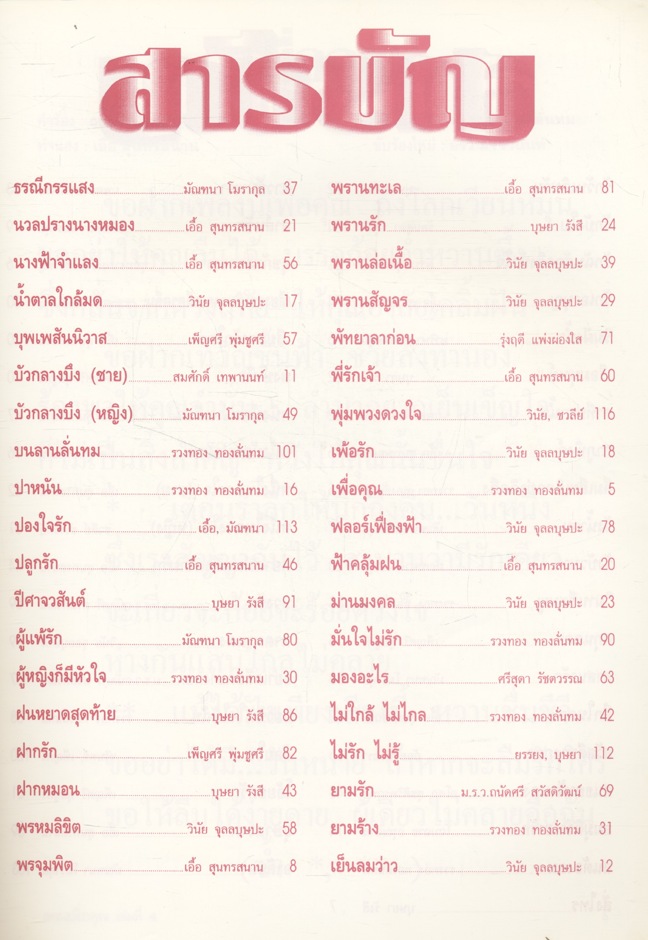 สารบัญ
ธรณีกรรแสง มัณฑนา โมรากุล 37
นวลปรางนางหมอง เอื้อ สุนทรสนาน 21
นางฟ้าจำแลง เอื้อ สุนทรสนาน 56
น้ำตาลใกล้มด วินัย จุลลบุษปะ 17
บุพเพสันนิวาส เพ็ญศรี พุ่มชูศรี 57
บัวกลางบึง (ชาย) สมศักดิ์ เทพานนท์ 11
บัวกลางบึง (หญิง) มัณฑนา โมรากุล 49
บนลานลั่นทม รวงทอง ทองลั่นทม 101
ปาหนัน รวงทอง ทองลั่นทม 16
ปองใจรัก เอื้อ, มัณฑนา 113
ปลูกรัก เอื้อ สุนทรสนาน 46
ปีศาจวสันต์ บุษยา รังสี 91
ผู้แพ้รัก มัณฑนา โมรากุล 80
ผู้หญิงก็มีหัวใจ รวงทอง ทองลั่นทม 30
ฝนหยาดสุดท้าย บุษยา รังสี 86
ฝากรัก เพ็ญศรี พุ่มชูศรี 82
ฝากหมอน บุษยา รังสี 43
พรหมลิขิต วินัย จุลลบุษปะ 58
พรจุมพิต เอื้อ สุนทรสนาน 8
พรานทะเล เอื้อ สุนทรสนาน 81
พรานรัก บุษยา รังสี 24
พรานล่อเนื้อ วินัย จุลลบุษปะ 39
พรานสัญจร วินัย จุลลบุษปะ 29
พัทยาลาก่อน รุ่งฤดี แพ่งผ่องใส 71
พี่รักเจ้า เอื้อ สุนทรสนาน 60
พุ่มพวงดวงใจ วินัย, ชวลีย์ 116
เพ้อรัก วินัย จุลลบุษปะ 18
เพื่อคุณ รวงทอง ทองลั่นทม 5
ฟลอร์เฟื่องฟ้า วินัย จุลลบุษปะ 78
ฟ้าคลุ้มฝน เอื้อ สุนทรสนาน 20
ม่านมงคล วินัย จุลลบุษปะ 23
มั่นใจไม่รัก รวงทอง ทองลั่นทม 90
มองอะไร ศรีสุดา รัชตวรรณ 63
ไม่ใกล้ ไม่ไกล รวงทอง ทองลั่นทม 42
ไม่รัก ไม่รู้ ยรรยง, บุษยา 112
ยามรัก ม.ร.ว.ถนัดศรี สวัสดิวัฒน์ 69
ยามร้าง รวงทอง ทองลั่นทม 31
เย็นลมว่าว วินัย จุลลบุษปะ 12